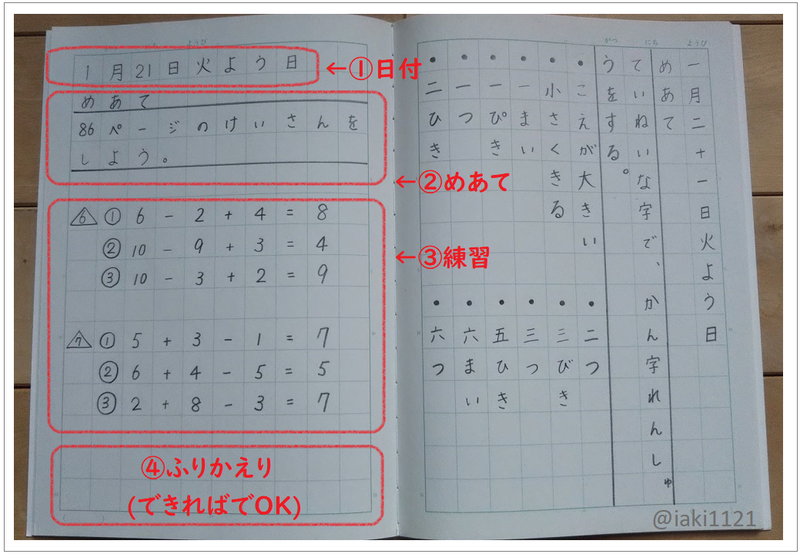 1月21日火よう日
←①日付
めあて
86ページのけいさんを
しよう。
←②めあて
⑥ ① 6 - 2 + 4 = 8
② 10 - 9 + 3 = 4
③ 10 - 3 + 2 = 9
←③練習
⑦ ① 5 + 3 - 1 = 7
② 6 + 4 - 5 = 5
③ 2 + 8 - 3 = 7
④ふりかえり
(できればでOK)
ようび
がつ にち ようび
一月二十一日火よう日
めあて
ていねいな字で、かん字れんしゅ
うをする。
・こえが大きい
・二つ
・小さくきる
・三びき
・一まい
・三つ
・一ぴき
・五ひき
・一つ
・六まい
・二ひき
・六つ
@iaki1121